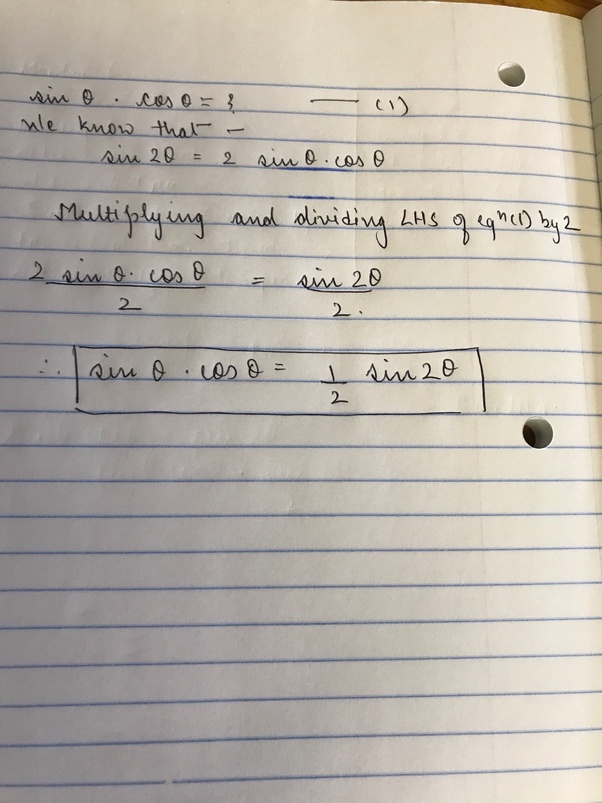 sin θ . cos θ = ? —— (1)
We know that –
sin 2θ = 2 sin θ . cos θ
Multiplying and dividing LHS of eqⁿ(1) by 2
2 sin θ . cos θ / 2 = sin 2θ / 2 .
∴ sin θ . cos θ = 1/2 sin 2θ